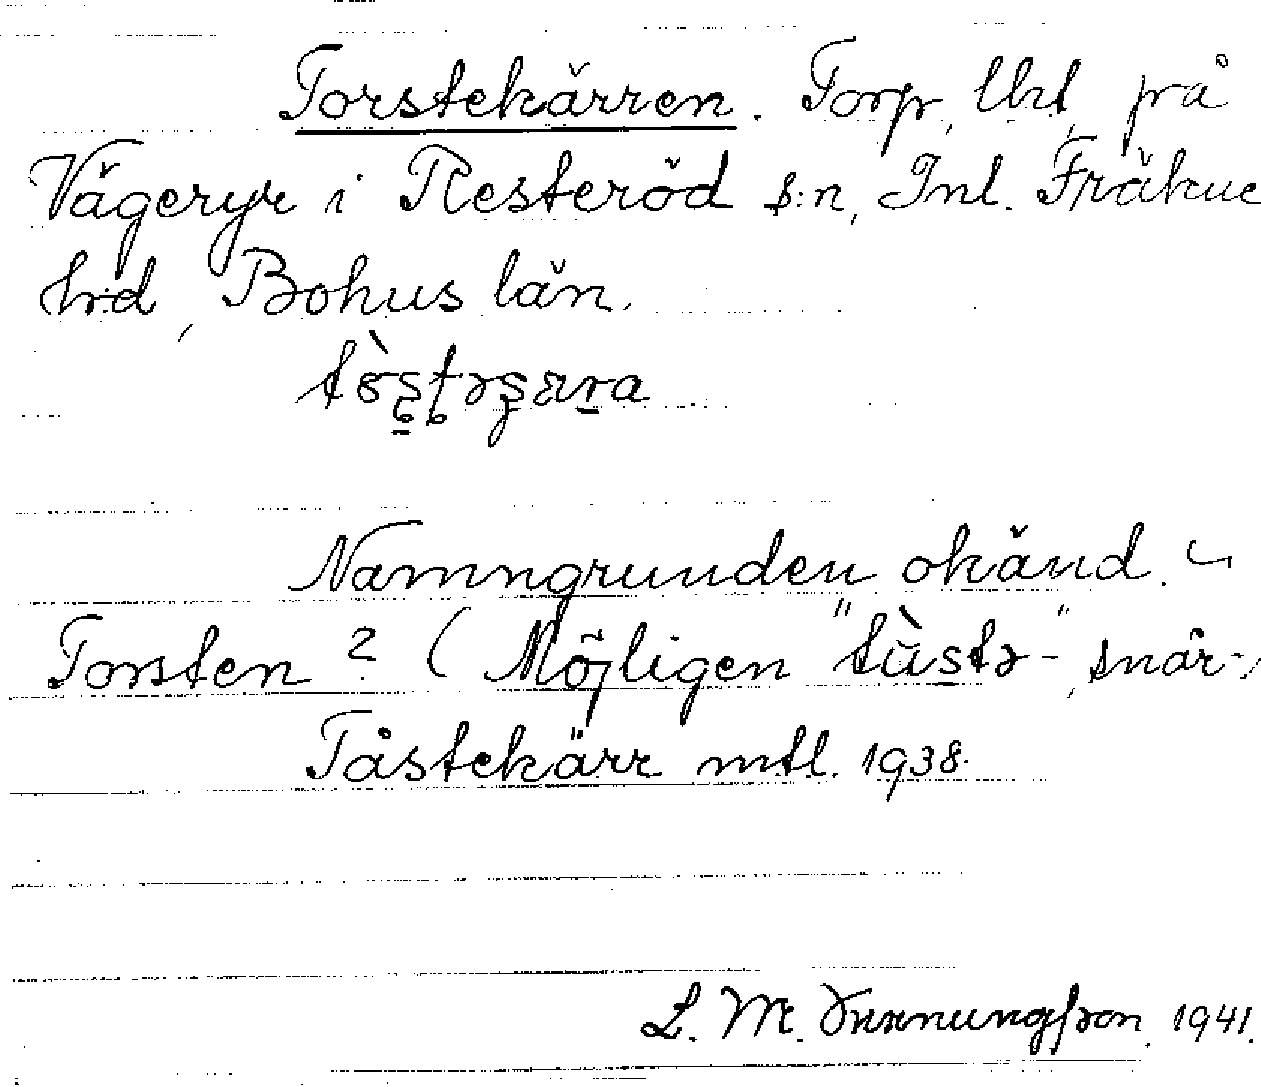 Torstekärren. Torp, lht, på
Vägeryr i Resteröd s:n, Inl. Fräkne
hrd, Bohus län.
Namngrunden okänd.
Torsten? (Möjligen "tùstə-", snår-,
Tåstekärr mtl. 1938.
L. M. 1941.